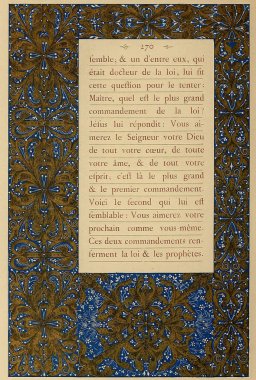 170
semble; & un d'entre eux, qui
était docteur de la loi, lui fit
cette question pour le tenter:
Maître, quel est le plus grand
commandement de la loi?
Jésus lui répondit: Vous ai-
merez le Seigneur votre Dieu
de tout votre cœur, de toute
votre âme, & de tout votre
esprit. c'est là le plus grand
& le premier commandement.
Voici le second qui lui est
semblable: Vous aimerez votre
prochain comme vous-même.
Ces deux commandements ren-
ferment la loi & les prophètes.